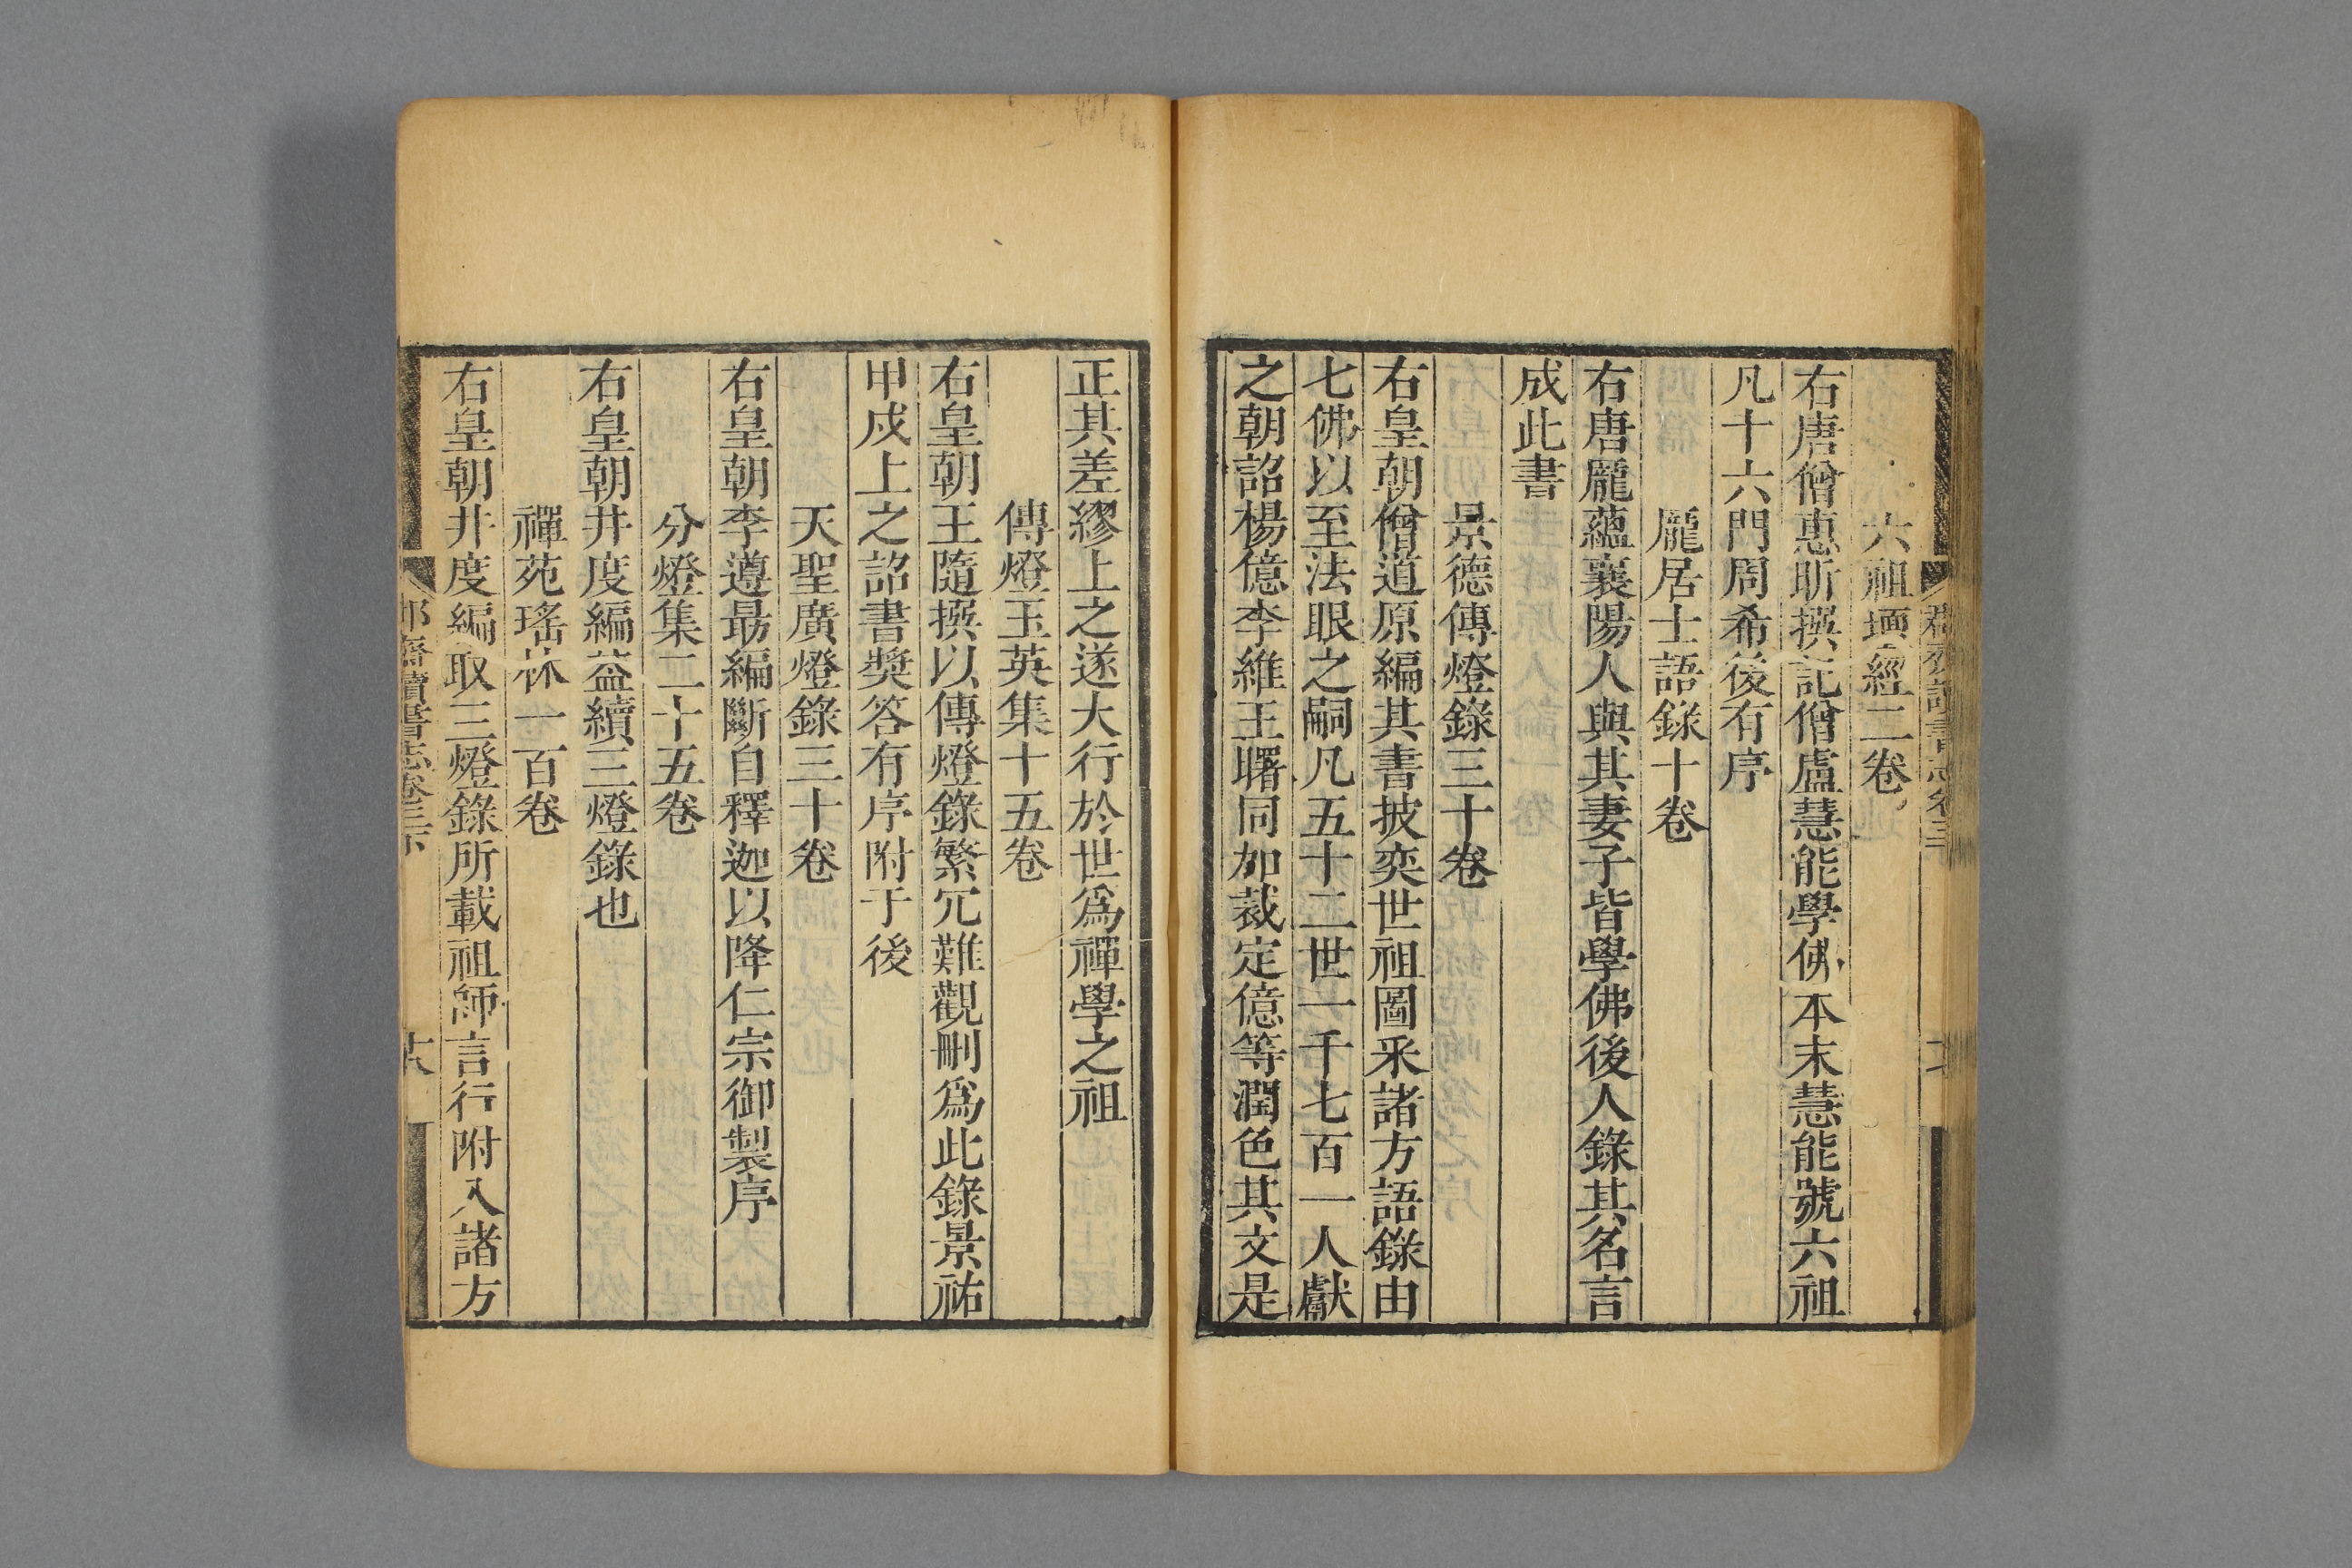 六祖壇經二卷
右唐僧惠昕撰記僧盧慧能學佛本末慧能號六祖
凡十六門周希後有序
龐居士語錄十卷
右唐龐蘊襄陽人與其妻子皆學佛後人錄其名言
成此書
景德傳燈錄三十卷
右皇朝僧道原編其書披奕世祖圖釆諸方語錄由
七佛以至法眼之嗣凡五十二世一千七百一人獻
之朝詔楊億李維王曙同加裁定億等潤色其文是
正其差繆上之遂大行於世爲禪學之祖
傳燈玉英集十五卷
右皇朝王隨撰以傳燈錄繁冗難觀刪爲此錄景祐
甲戍上之詔書獎答有序附于後
天聖廣燈錄三十卷
右皇朝李遵勗編斷自釋迦以降仁宗御製序
分燈集二十五卷
右皇朝井度編益續三燈錄也
禪苑瑤林一百卷
右皇朝井度編取三燈錄所載祖師言行附入諸方
郡齋讀書志卷三下